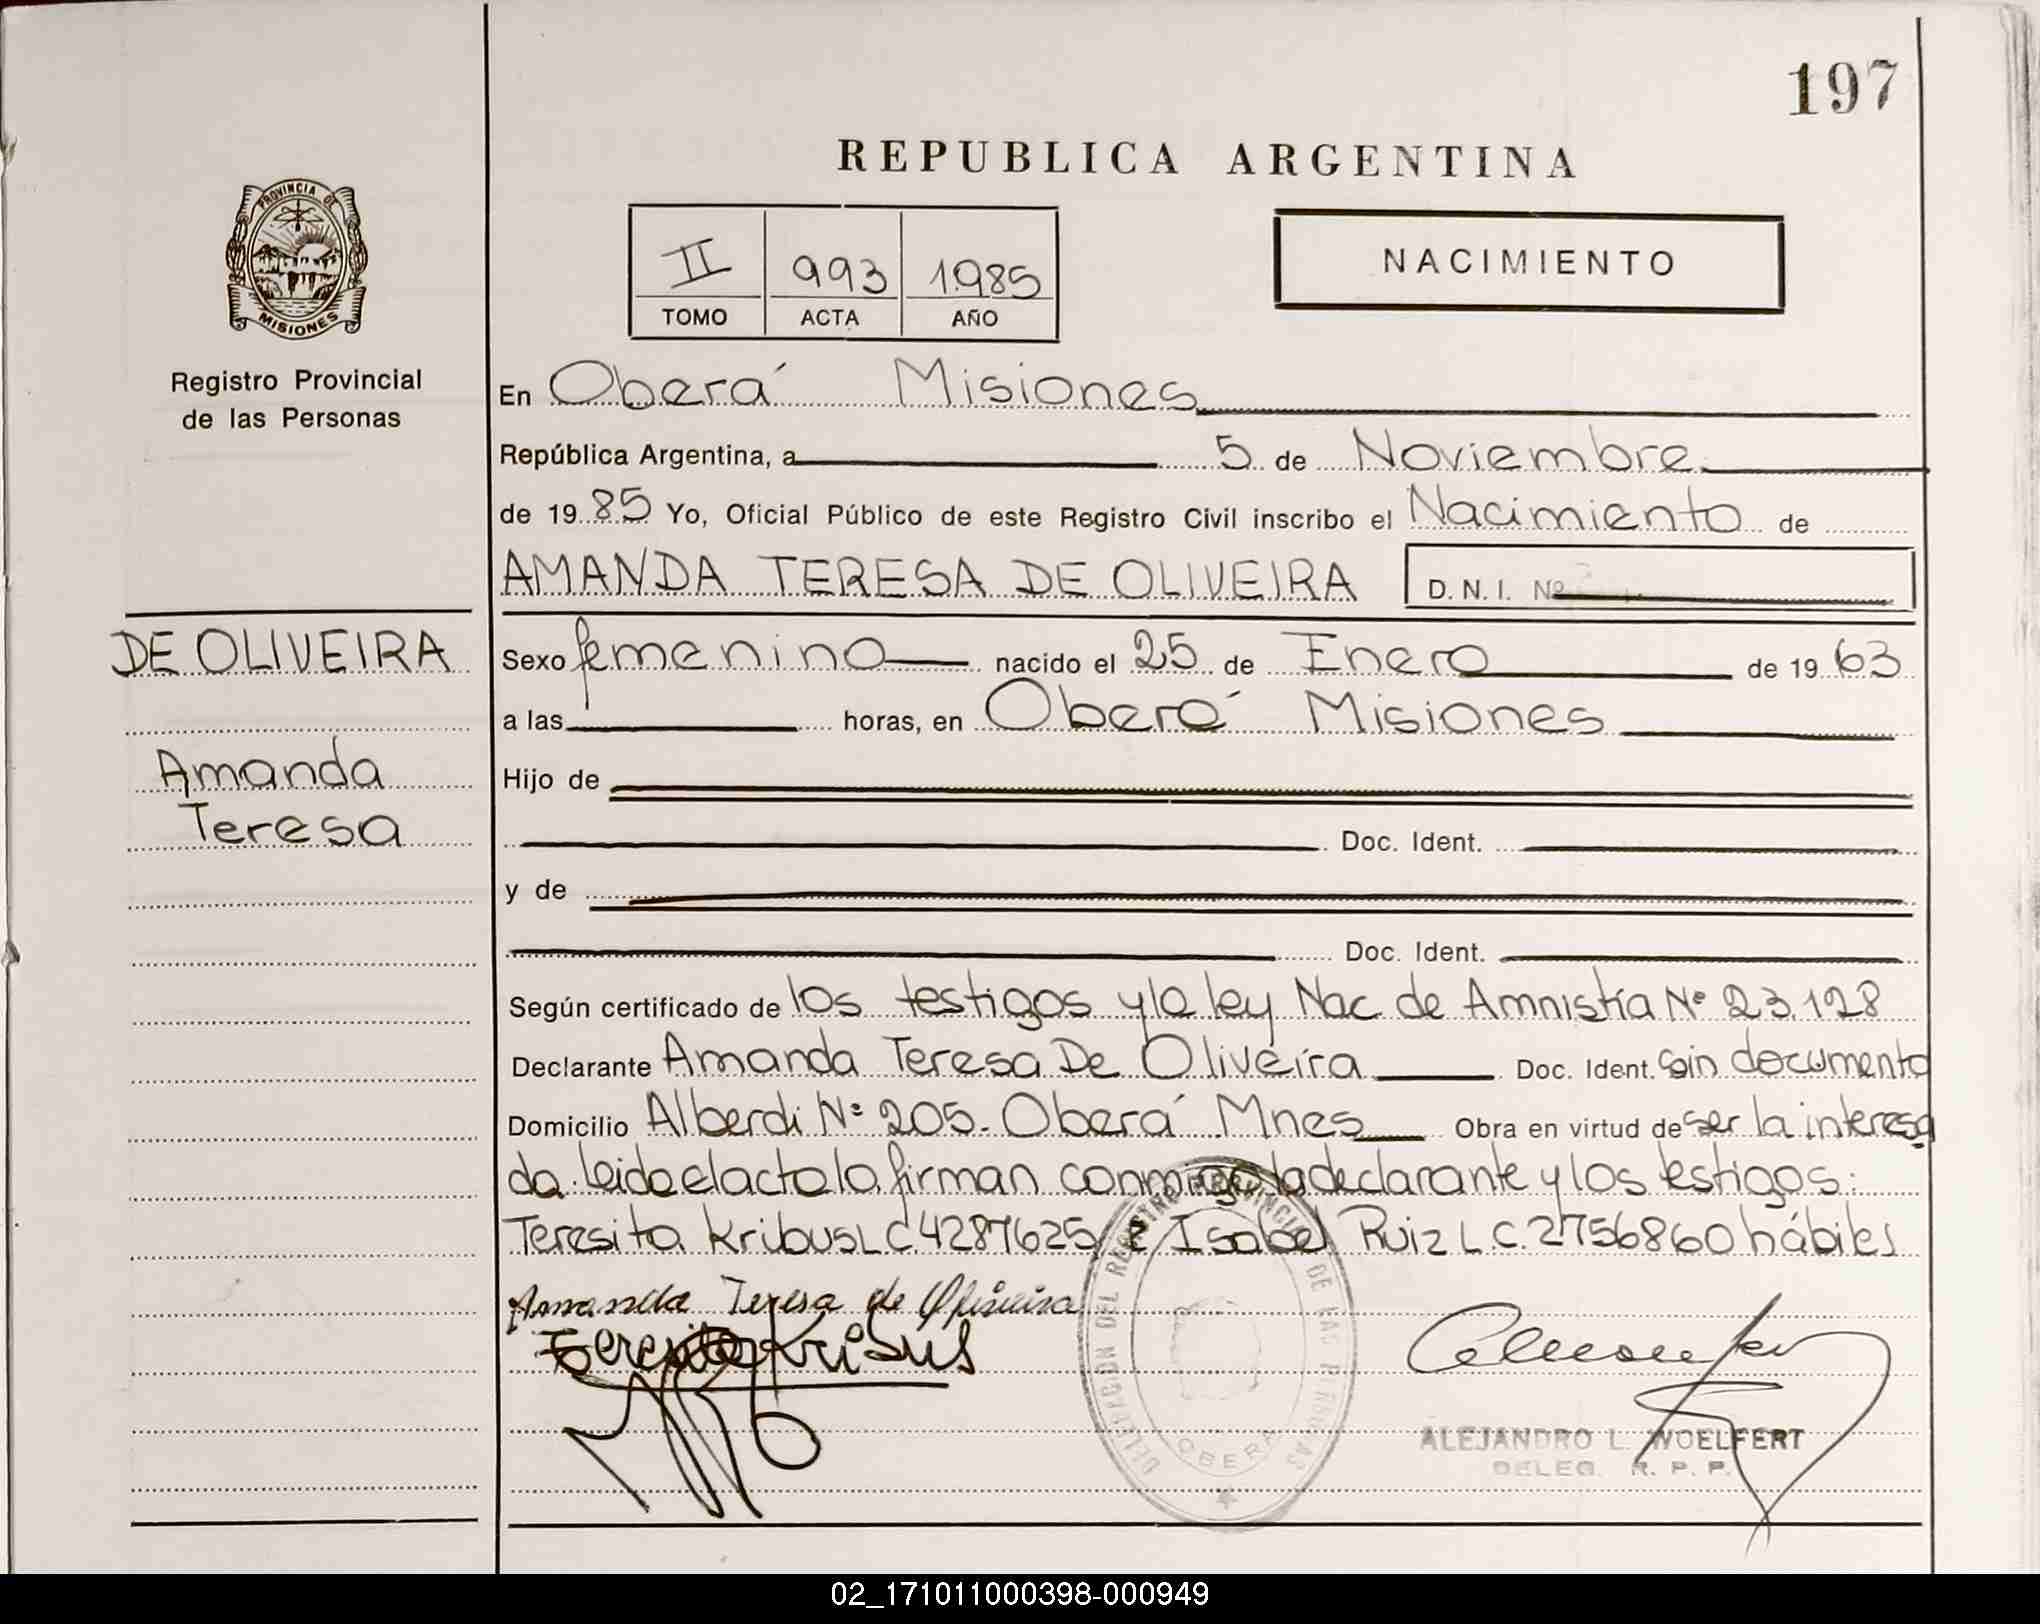 197
REPUBLICA ARGENTINA
PROVINCIA DE
MISIONES
Registro Provincial
de las Personas
II 993 1985
TOMO ACTA AÑO
NACIMIENTO
En Oberá Misiones
República Argentina, a 5 de Noviembre
de 1985 Yo, Oficial Público de este Registro Civil inscribo el Nacimiento de
AMANDA TERESA DE OLIVEIRA D.N.I. Nº
DE OLIVEIRA
Amanda
Teresa
Sexo femenino nacido el 25 de Enero de 1963
a las horas, en Oberá Misiones
Hijo de
Doc. Ident.
y de
Doc. Ident.
Según certificado de los testigos y la ley Nac de Amnistía Nº 23.128
Declarante Amanda Teresa De Oliveira Doc. Ident. Sin documento
Domicilio Alberdi Nº 205. Oberá Mnes Obra en virtud de ser la interesa
da. Leido el acta la firman conmigo la declarante y los testigos:
Teresita Kribus L C. 4287625 e Isabel Ruiz L.C. 2756860 hábiles
Amanda Teresa de Oliveira
Teresita Kribus
DELEGACION DEL REGISTRO PROVINCIAL DE LAS PERSONAS
OBERA
ALEJANDRO L. WOELFERT
DELEG. R. P. P.
02_171011000398-000949